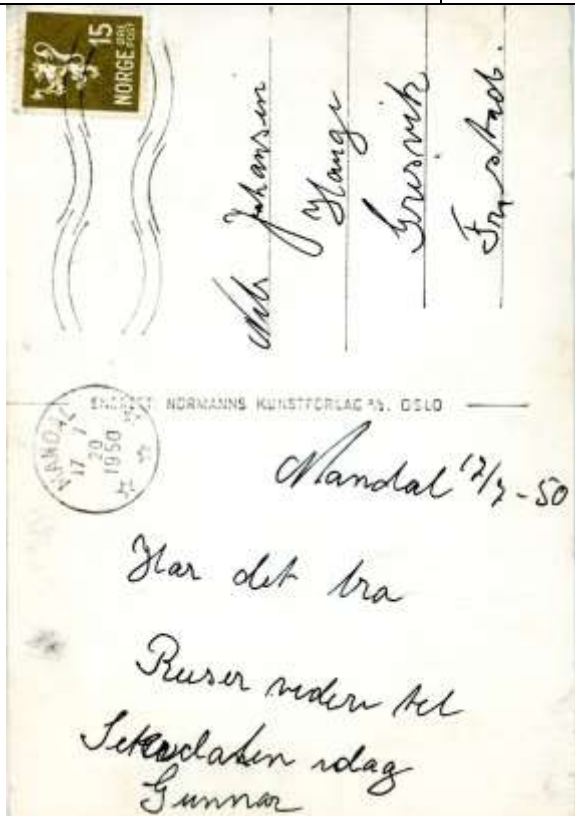 15
ØRE
POST
NORGE
Nils Johansen
Hauge
Gresvik
Fr,stad.
ENERET NORMANNS KUNSTFORLAG A/S. OSLO
MANDAL
17 7
20
1950
Mandal 17/7-50
Har det bra
Reiser videre til
Setesdalen idag
Gunnar